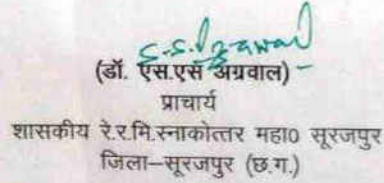 S.S. Agrawal
(डॉ. एस.एस अग्रवाल)
प्राचार्य
शासकीय रे.र.मि.स्नाकोत्तर महा0 सूरजपुर
जिला–सूरजपुर (छ.ग.)